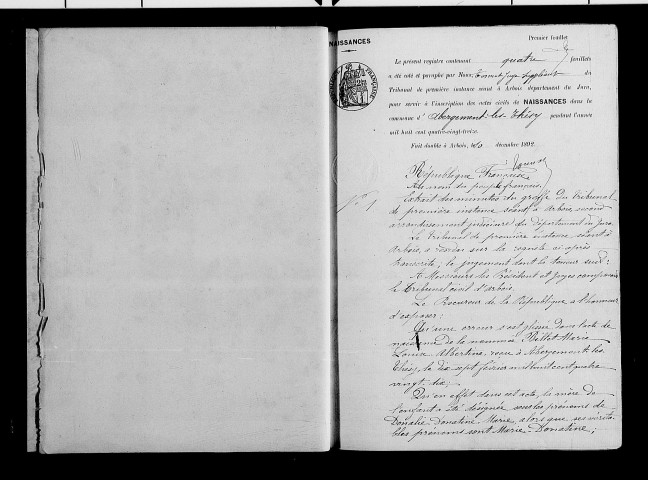 NAISSANCES
Premier feuillet
Le présent registre contenant quatre feuillets
a été coté et paraphé par Nous, Juge Suppléant du
Tribunal de première instance séant à Arbois département du Jura,
pour servir à l'inscription des actes civils de NAISSANCES dans la
commune d'Abergement-les-Thésy pendant l'année
mil huit cent quatre-vingt-treize.
Fait double à Arbois, le décembre 1892.
République Française
Au nom du peuple français.
N° 1
Extrait des minutes du greffe du Tribunal
de première instance séant à Arbois, second
arrondissement judiciaire du Département du Jura
Le Tribunal de première instance séant à
Arbois, a rendu sur la requête ci-après
transcrite, le jugement dont la teneur suit:
A Messieurs les Président et Juges composant
le Tribunal civil d'Arbois
Le Procureur de la République a l'honneur
d'exposer:
Qu'une erreur s'est glissée dans l'acte de
naissance de la nommée Billot Marie
Louise Albertine, reçu à Abergement-les-
Thésy, le dix sept février mil huit cent quatre
vingt dix.
Qu'en effet dans cet acte, la mère de
l'enfant a été désignée sous les prénoms de
Donatie Donatine Marie, alors que ses vérita
bles prénoms sont Marie-Donatine;